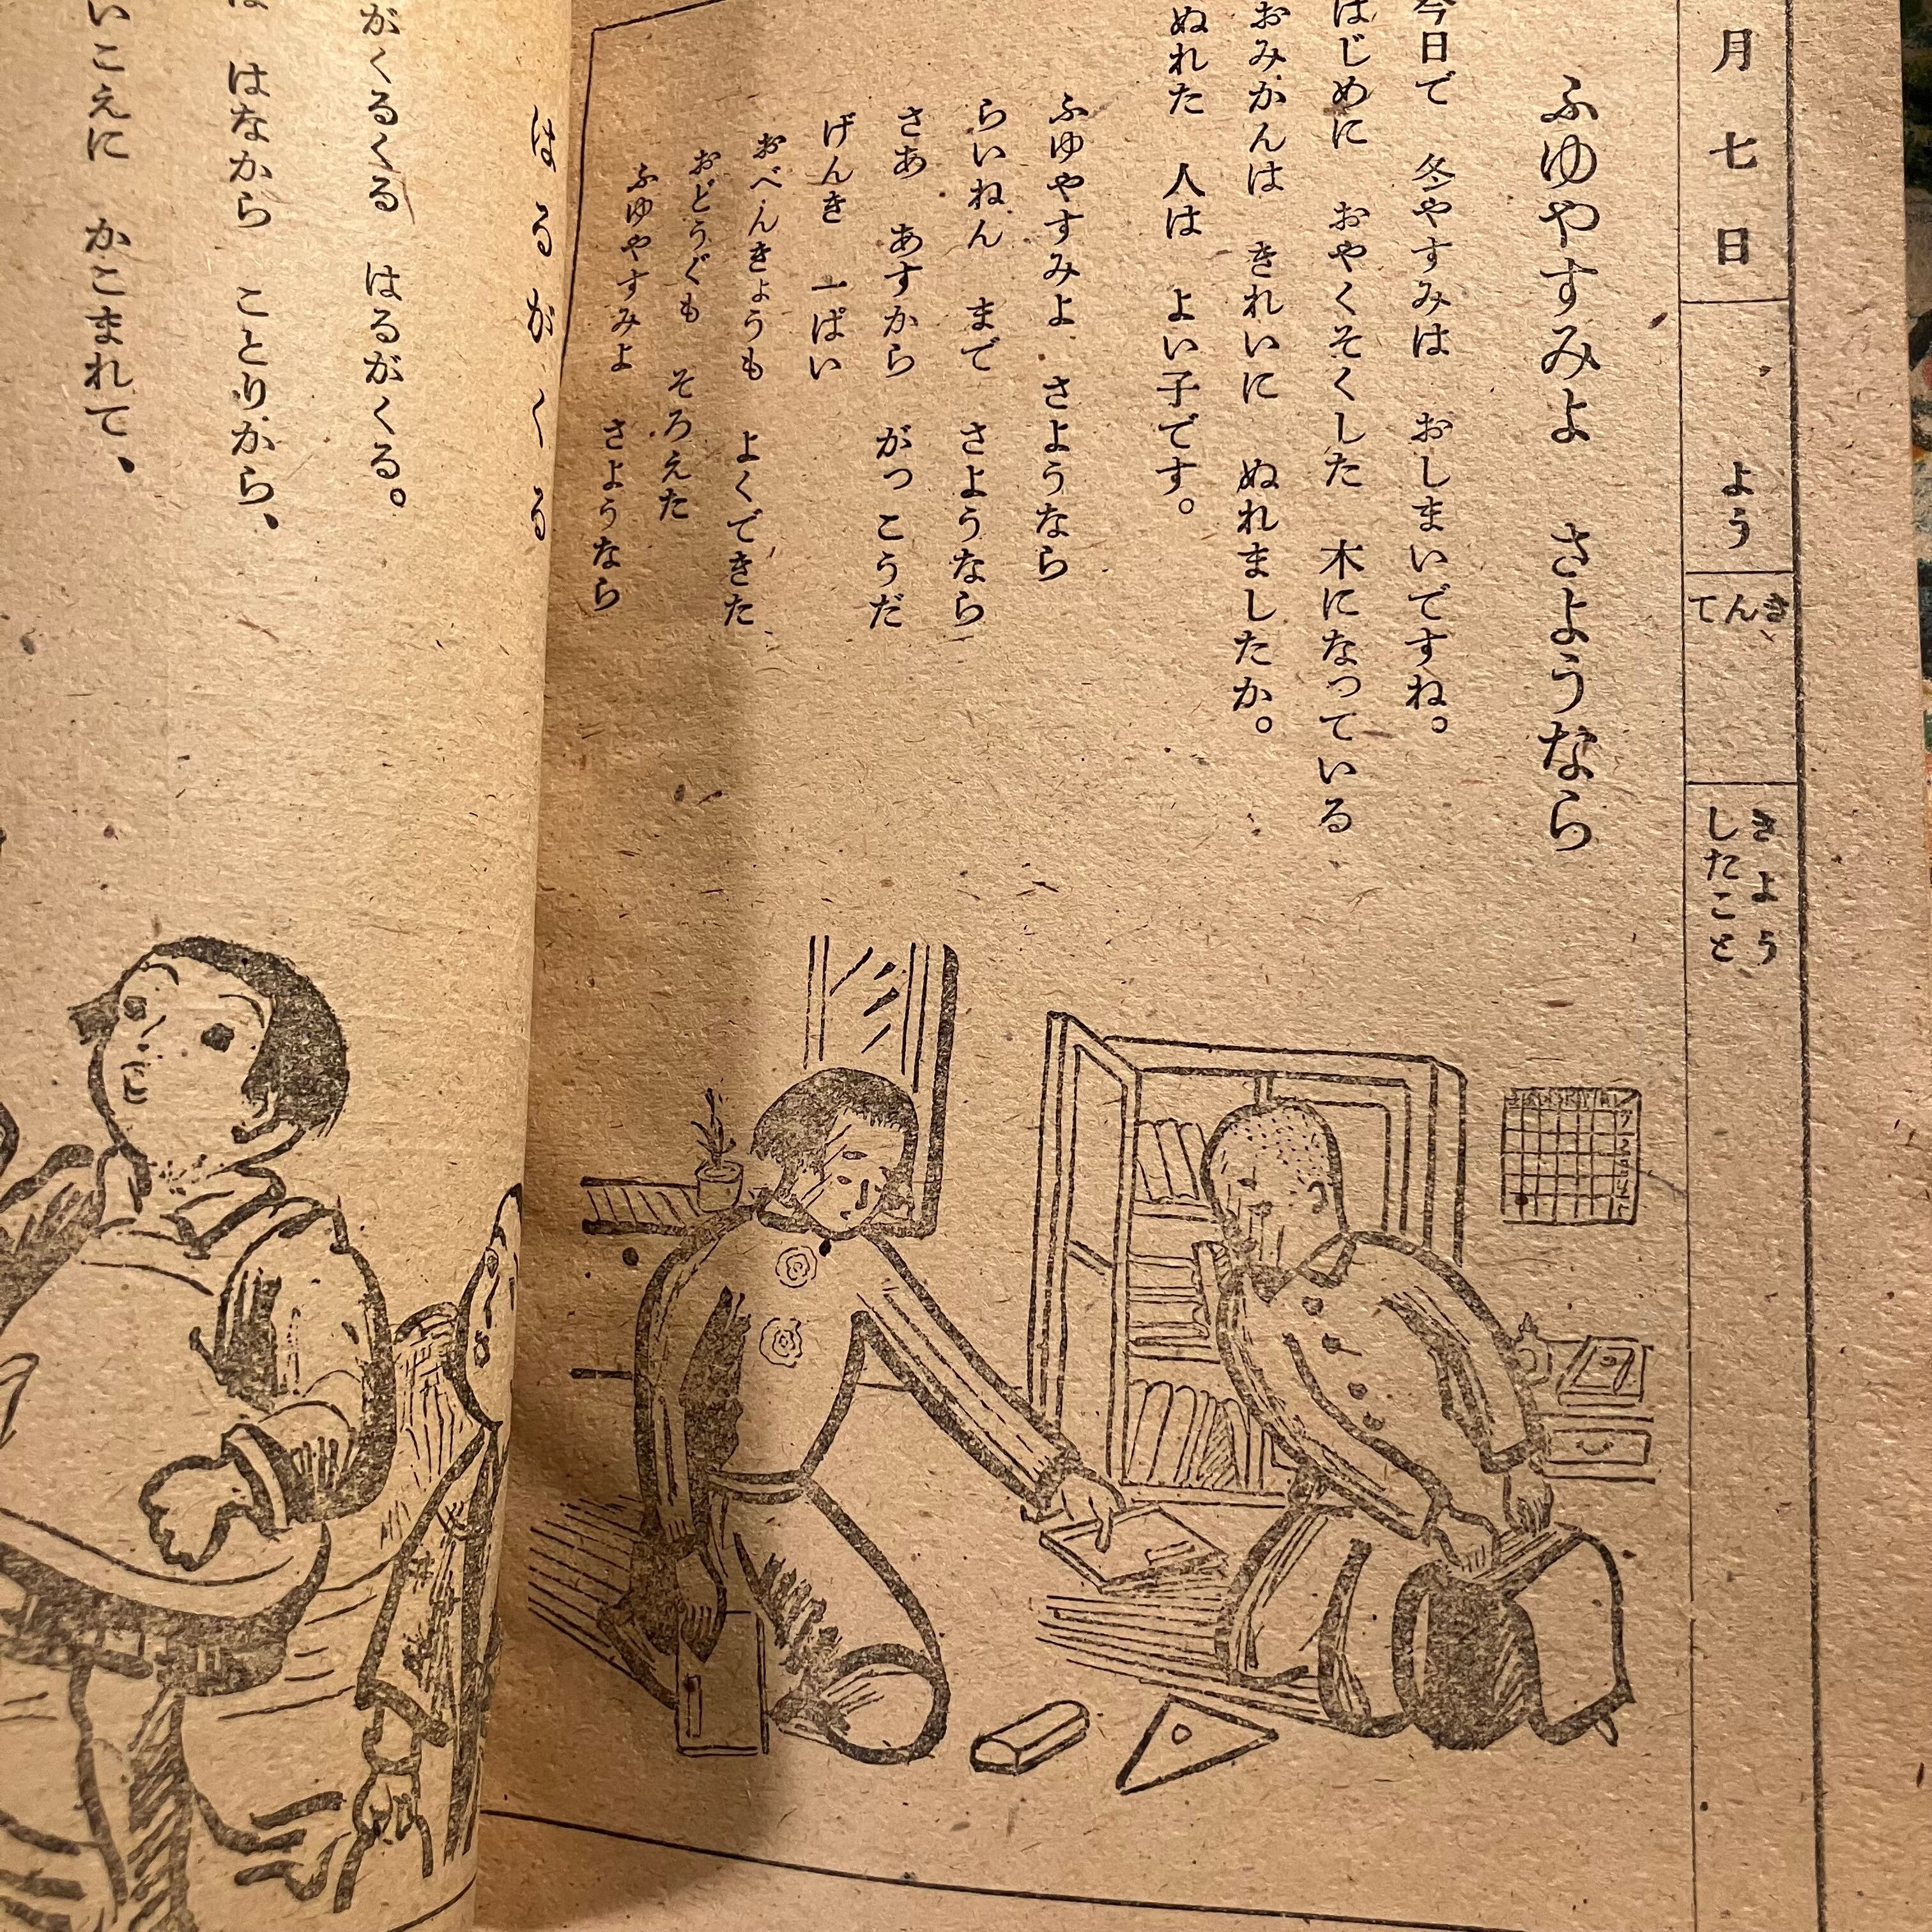 月七日
よう
てんき
きよう
したこと
ふゆやすみよ さようなら
今日で 冬やすみは おしまいですね。
はじめに おやくそくした 木になつている
おみかんは きれいに ぬれましたか。
ぬれた 人は よい子です。
ふゆやすみよ さようなら
らいねん まで さようなら
さあ あすから がつこうだ
げんき 一ぱい
おべんきょうも よくできた
おどうぐも そろえた
ふゆやすみよ さようなら
はるがくる
がくるくる はるがくる。
はなから ことりから、
いこえに かこまれて、